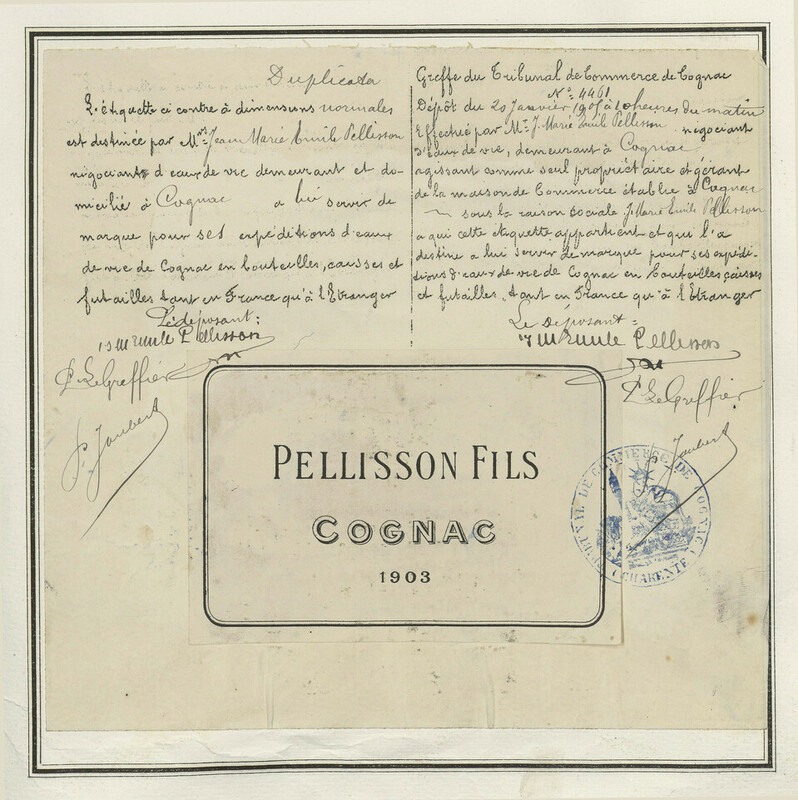 Duplicata
L'étiquette ci contre à dimensions normales
est destinée par Mr Jean Marie Emile Pellisson
négociant d'eaux de vie demeurant et do-
micilié à Cognac a lui servir de
marque pour ses expéditions d'eaux
de vie de Cognac en bouteilles, caisses et
futailles tant en France qu'à l'Etranger
Le déposant:
Emile Pellisson
P. Le Greffier
P. Joubert
Greffe du Tribunal de Commerce de Cognac
No. 4461
Dépôt du 20 Janvier à 10 heures du matin
Effectué par Mr. J. Marie Emile Pellisson négociant
d'eaux de vie, demeurant à Cognac
agissant comme seul propriétaire et gérant
de la maison de Commerce établie à Cognac
sous la raison sociale J. Marie Emile Pellisson
a qui cette etiquette appartient et qui l'a
destine a lui servir de marque pour ses expédi-
tions d'eaux de vie de Cognac en bouteilles, caisses
et futailles, tant en France qu'à l'Etranger
Le Déposant:
Emile Pellisson
P. Le Greffier
P. Joubert
PELLISSON FILS
COGNAC
1903
TRIBUNAL DE COMMERCE DE COGNAC
(CHARENTE)